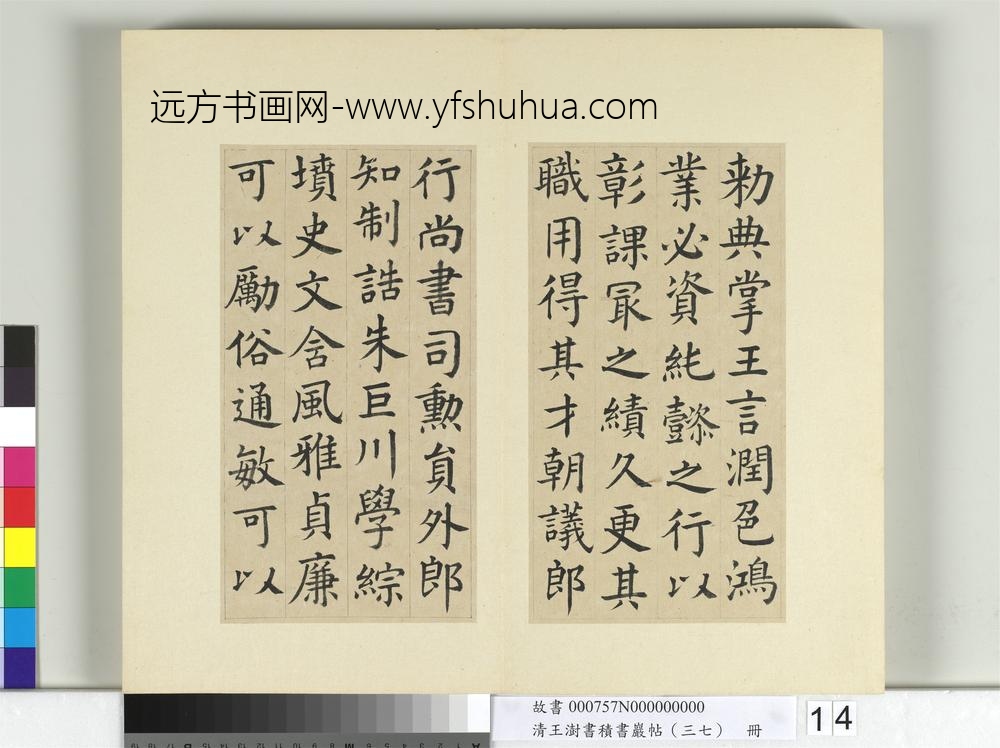 远方书画网-www.yfshuhua.com
勑典掌王言潤色鴻
業必資純懿之行以
彰課冣之績久更其
職用得其才朝議郎
行尚書司勲貟外郎
知制誥朱巨川學綜
墳史文含風雅貞廉
可以勵俗通敏可以
故書 000757N000000000
清王澍書積書巖帖（三七） 冊
14